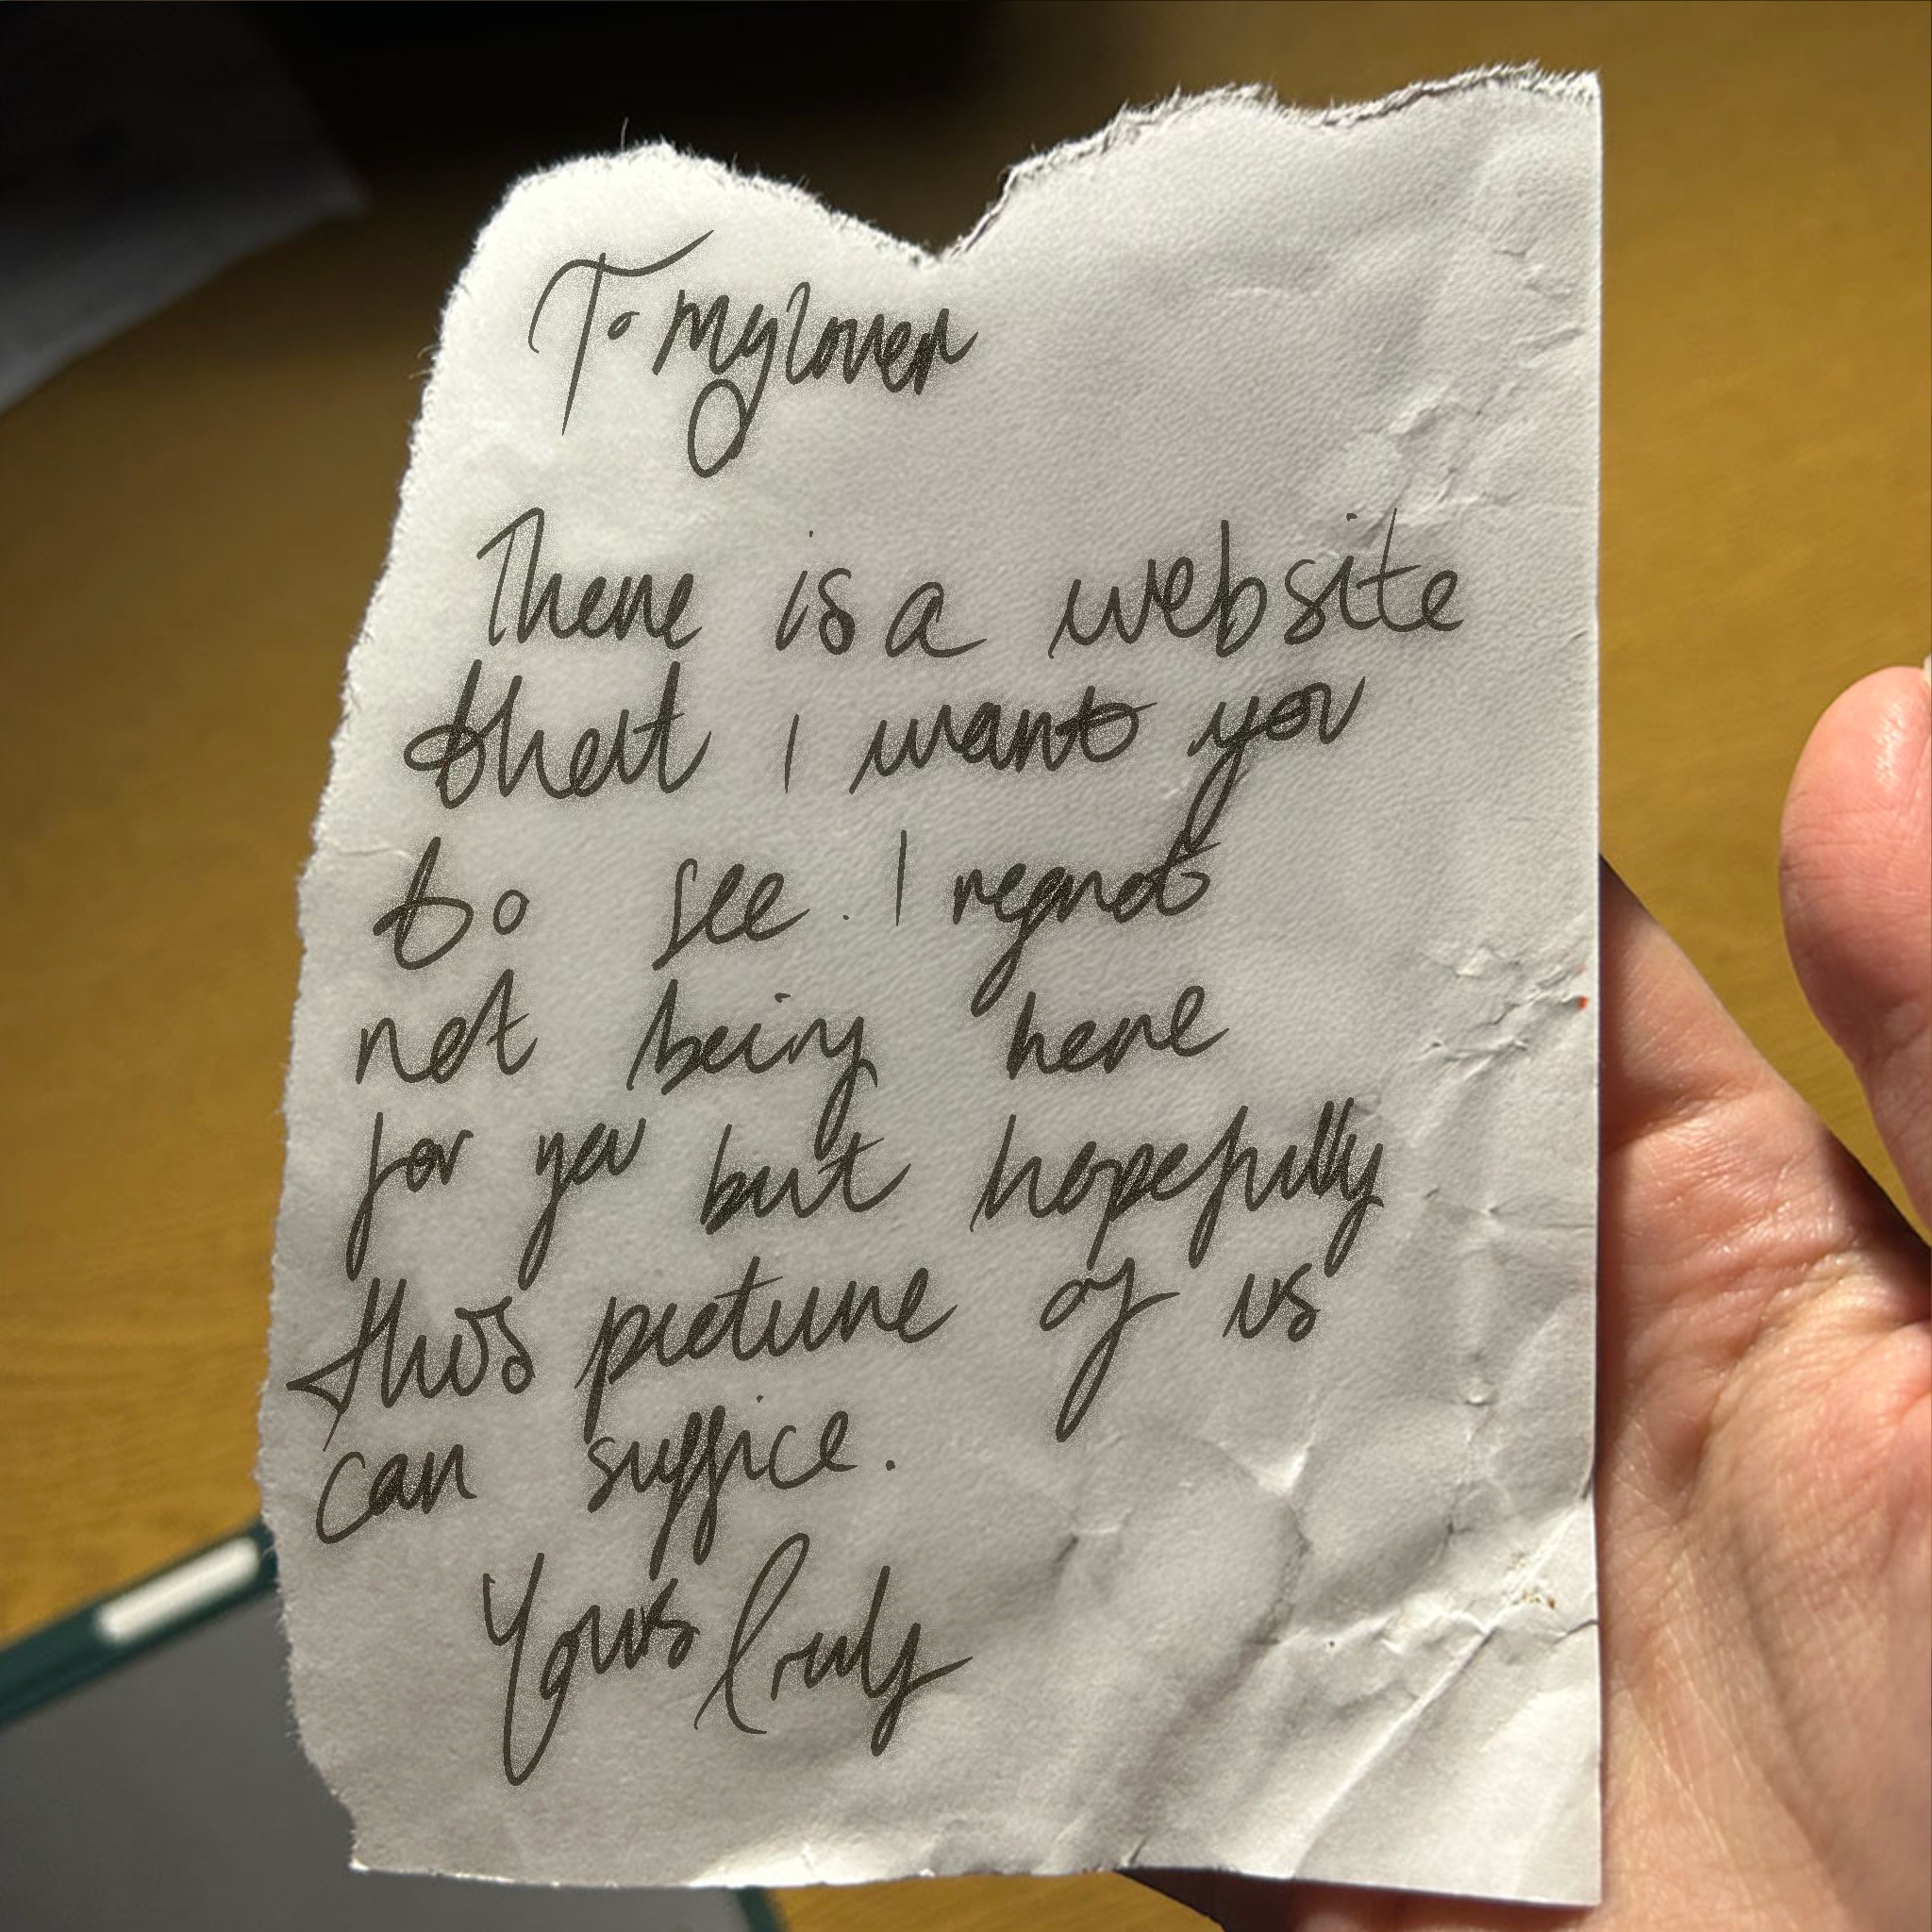 To my lover
There is a website
that I want you
to see. I regret
not being here
for you but hopefully
this picture of us
can suffice.
Yours Truly